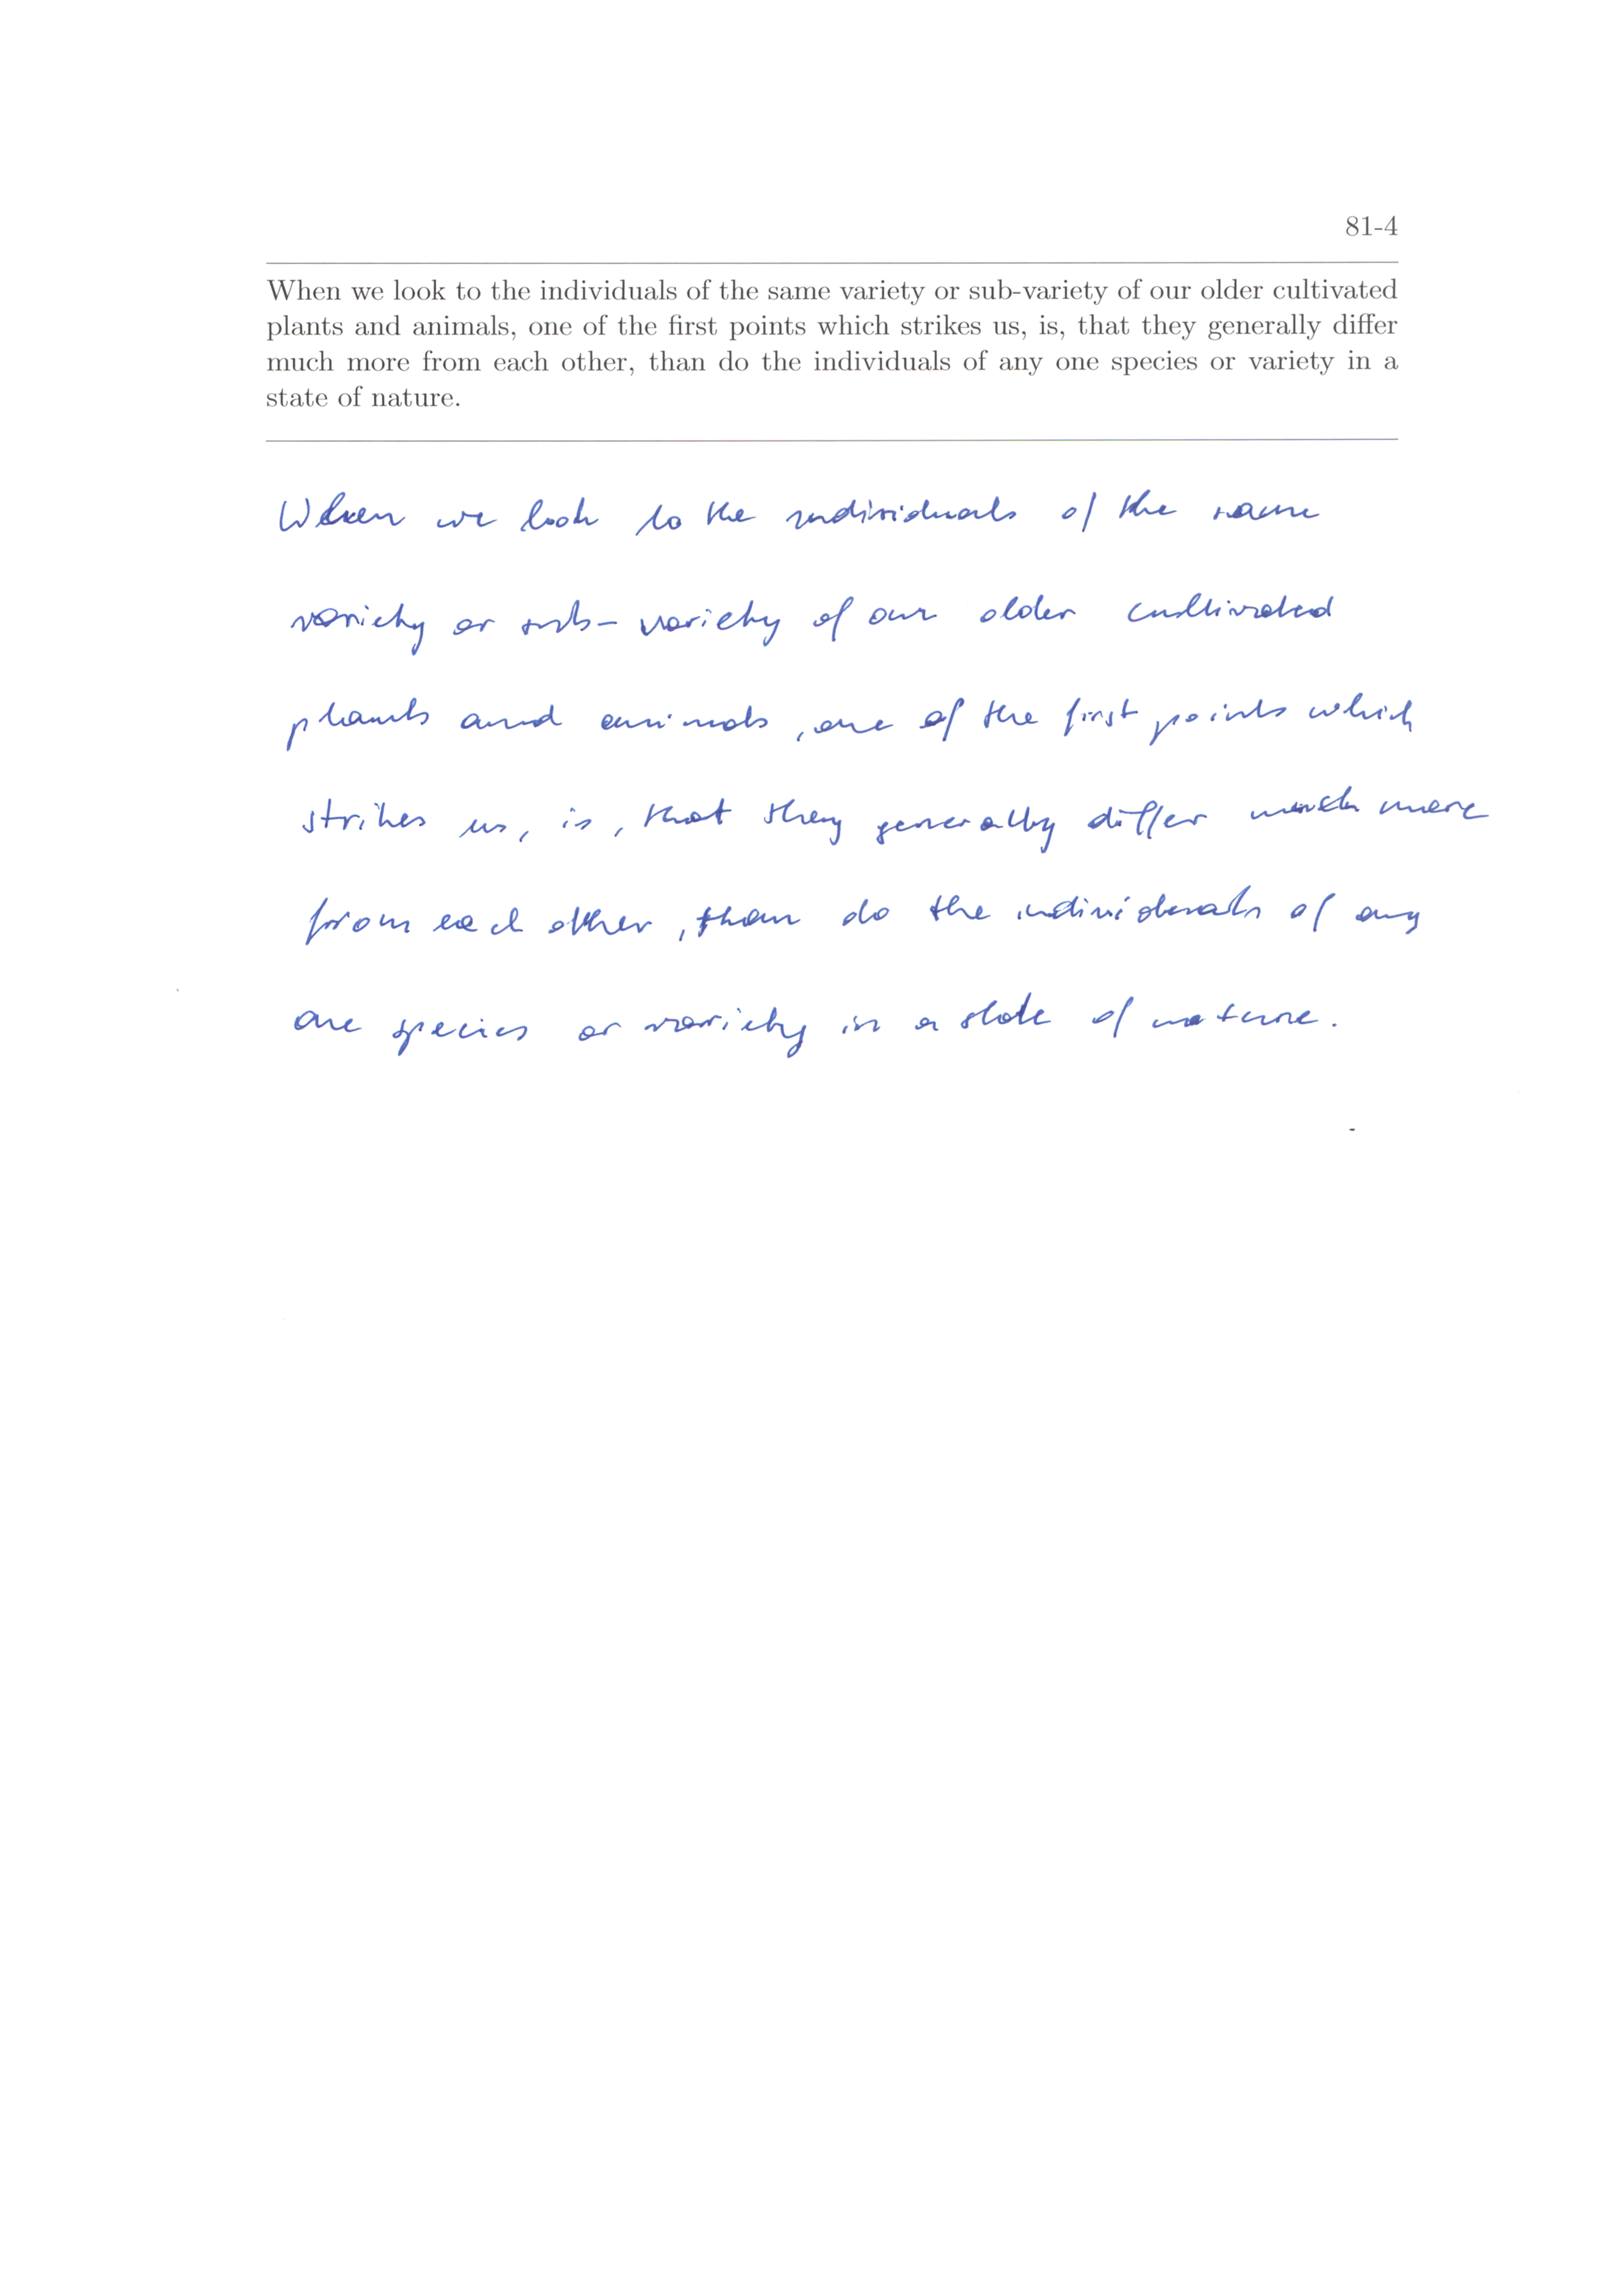 81-4
When we look to the individuals of the same variety or sub-variety of our older cultivated
plants and animals, one of the first points which strikes us, is, that they generally differ
much more from each other, than do the individuals of any one species or variety in a
state of nature.
When we look to the individuals of the same
variety or sub-variety of our older cultivated
plants and animals, one of the first points which
strikes us, is, that they generally differ much more
from each other, than do the individuals of any
one species or variety in a state of nature.